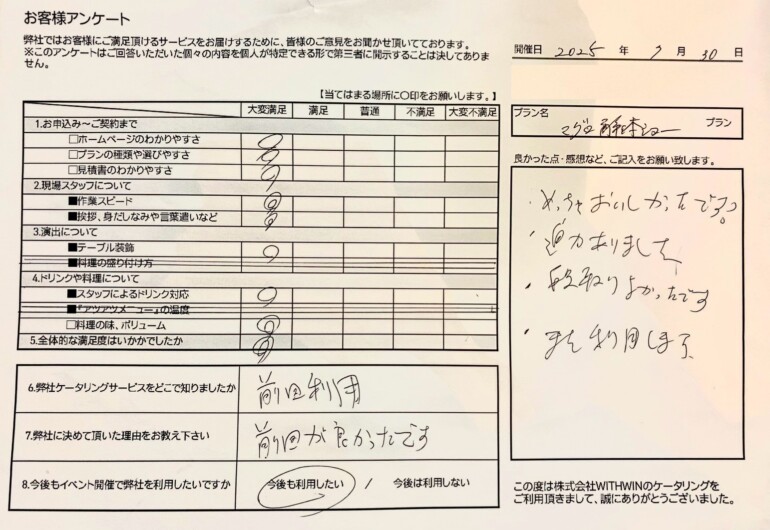 お客様アンケート
弊社ではお客様にご満足頂けるサービスをお届けするために、皆様のご意見をお聞かせ頂いております。
※このアンケートはご回答いただいた個々の内容を個人が特定できる形で第三者に開示することは決してありま
せん。
開催日 2025 年 7 月 30 日
【当てはまる場所に〇印をお願いします。】
大変満足 満足 普通 不満足 大変不満足
1.お申込み～ご契約まで
□ホームページのわかりやすさ
□プランの種類や選びやすさ
□見積書のわかりやすさ
2.現場スタッフについて
■作業スピード
■挨拶、身だしなみや言葉遣いなど
3.演出について
■テーブル装飾
■料理の盛り付け方
4.ドリンクや料理について
■スタッフによるドリンク対応
■『アツアツメニュー』の温度
□料理の味、ボリューム
5.全体的な満足度はいかがでしたか
6.弊社ケータリングサービスをどこで知りましたか 前回利用
7.弊社に決めて頂いた理由をお教え下さい 前回が良かったです
8.今後もイベント開催で弊社を利用したいですか 今後も利用したい / 今後は利用しない
プラン名
マグロ解体ショー プラン
良かった点・感想など、ご記入をお願い致します。
・めっちゃおいしかったです。
・迫力ありました
・段取りよかったです
・また利用します
この度は株式会社WITHWINのケータリングを
ご利用頂きまして、誠にありがとうございました。